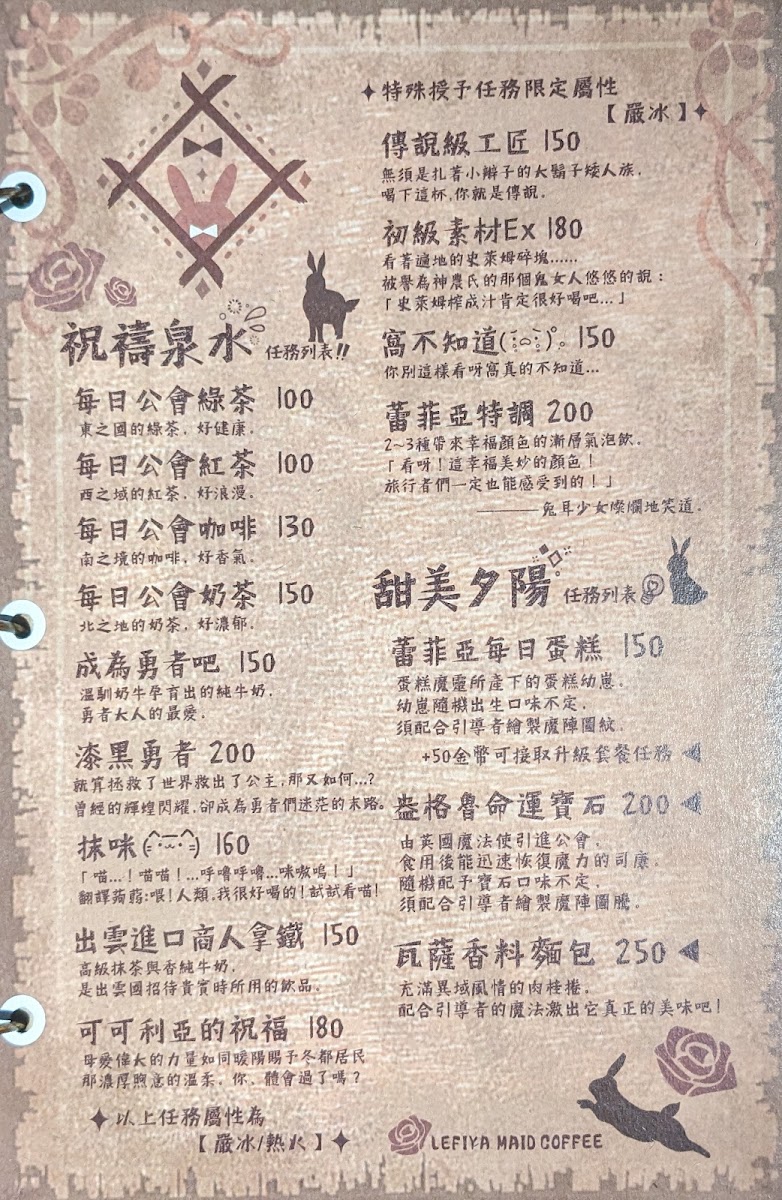 祝禱泉水 任務列表!!
每日公會綠茶 100
東之國的綠茶，好健康。
每日公會紅茶 100
西之域的紅茶，好浪漫。
每日公會咖啡 130
南之境的咖啡，好香氣。
每日公會奶茶 150
北之地的奶茶，好濃郁。
成為勇者吧 150
溫馴奶牛孕育出的純牛奶，
勇者大人的最愛。
漆黑勇者 200
就算拯救了世界救出了公主，那又如何...?
曾經的輝煌閃耀，卻成為勇者們迷茫的末路。
抹咪 160
「喵...！喵喵！...呼嚕呼嚕...咪嗷嗚！」
翻譯蒟蒻:喂!人類，我很好喝的!試試看喵!
出雲進口商人拿鐵 150
高級抹茶與香純牛奶，
是出雲國招待貴賓時所用的飲品。
可可利亞的祝福 180
母愛偉大的力量如同暖陽賜予冬都居民
那濃厚煦意的溫柔，你、體會過了嗎？
以上任務屬性為
【嚴冰/熱火】
特殊授予任務限定屬性
【嚴冰】
傳說級工匠 150
無須是扎著小辮子的大鬍子矮人族，
喝下這杯，你就是傳說。
初級素材Ex 180
看著遍地的史萊姆碎塊......
被譽為神農氏的那個鬼女人悠悠的說：
「史萊姆榨成汁肯定很好喝吧...」
窩不知道 150
你別這樣看呀窩真的不知道...
蕾菲亞特調 200
2~3種帶來幸福顏色的漸層氣泡飲。
「看呀！這幸福美妙的顏色！
旅行者們一定也能感受到的！」
———兔耳少女燦爛地笑道。
甜美夕陽 任務列表
蕾菲亞每日蛋糕 150
蛋糕魔靈所產下的蛋糕幼崽。
幼崽隨機出生口味不定，
須配合引導者繪製魔陣圖紋。
+50金幣可接取升級套餐任務
盎格魯命運寶石 200
由英國魔法使引進公會，
食用後能迅速恢復魔力的司康。
隨機配予寶石口味不定，
須配合引導者繪製魔陣圖騰。
瓦薩香料麵包 250
充滿異域風情的肉桂捲。
配合引導者的魔法激出它真正的美味吧！
LEFIYA MAID COFFEE